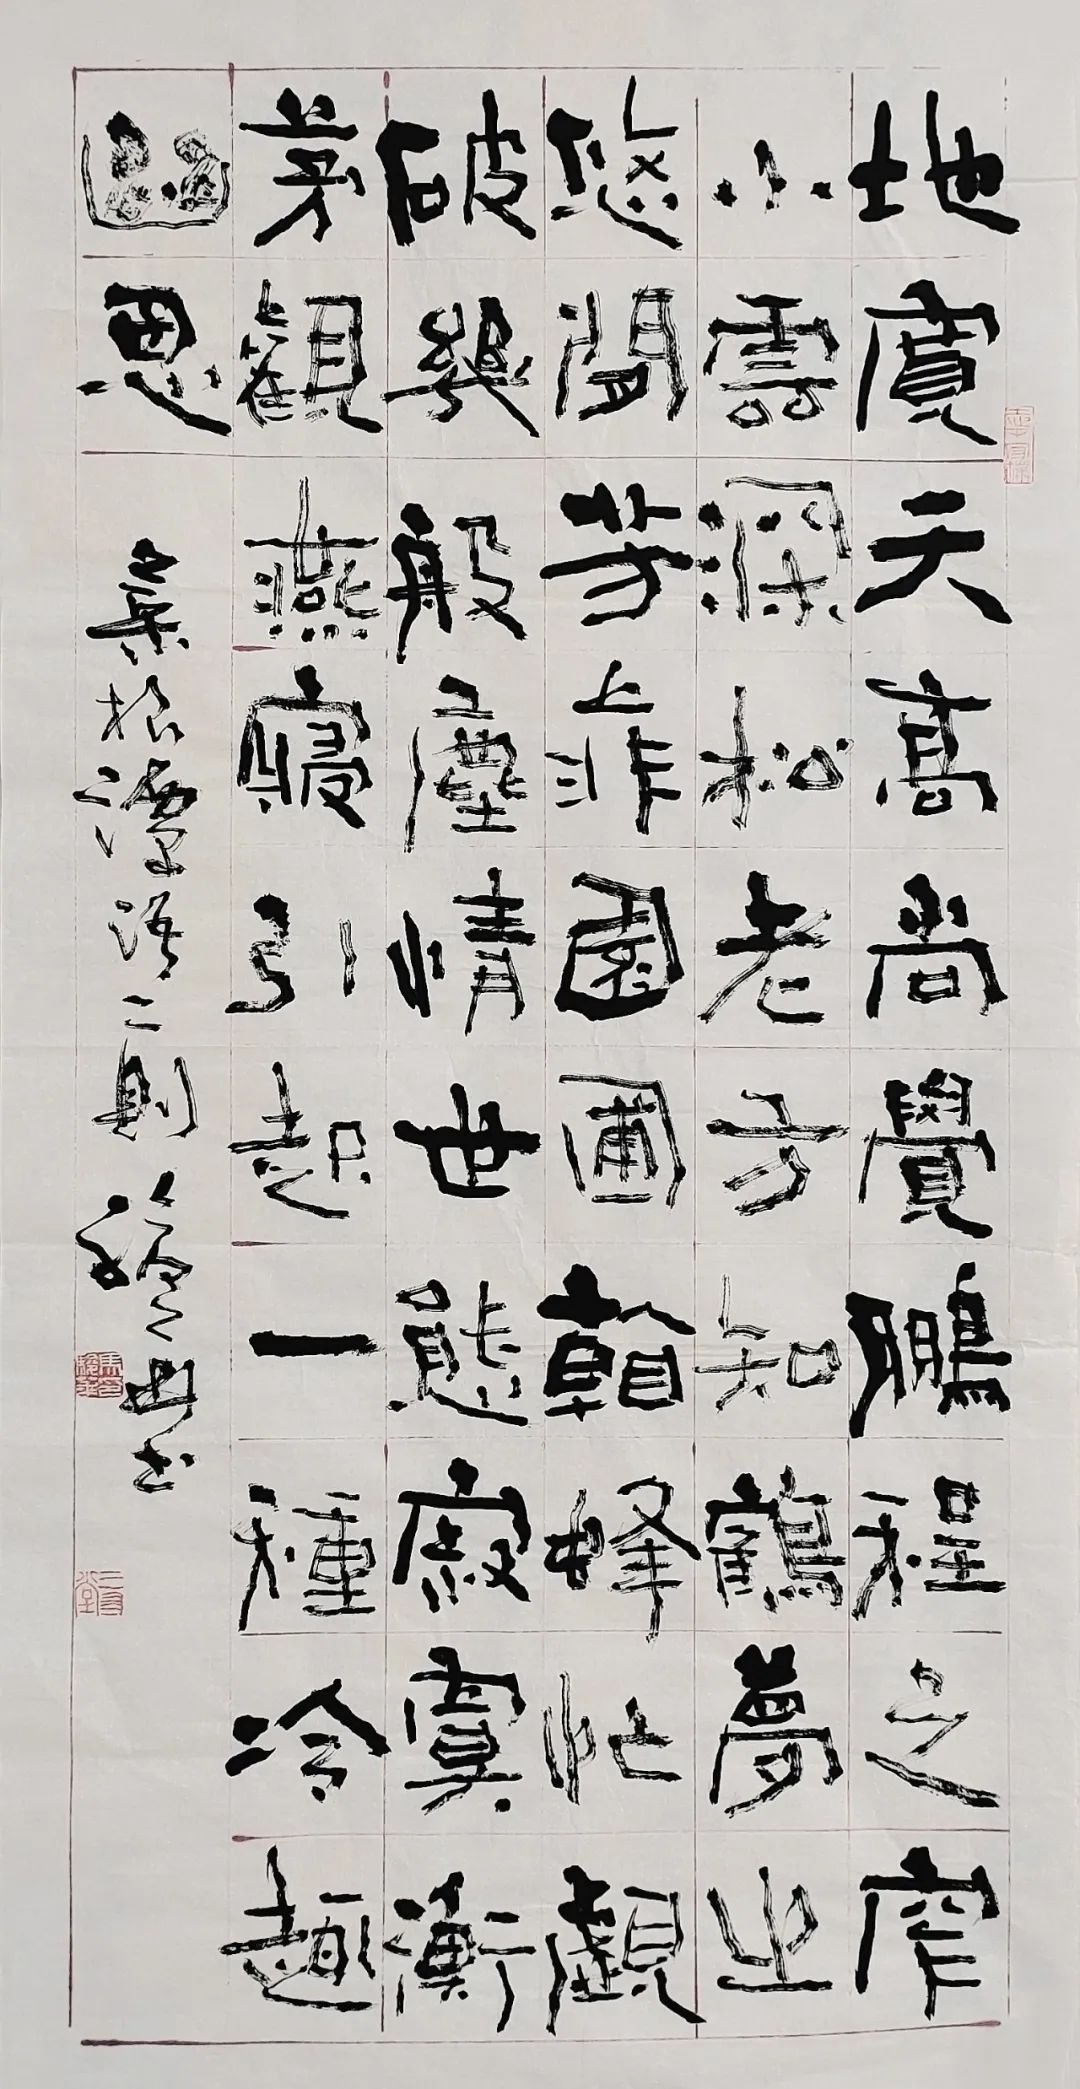 地寬天高尚覺鵬程之窄
小雲深松老方知鶴夢之
悠閒芳菲園圃看蜂忙覷
破幾般塵情世態寂寞衡
茅觀燕寢引起一種冷趣
幽思
菜根潭語二則 书